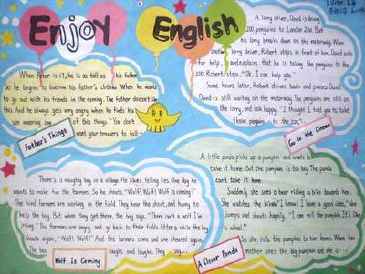 Enjoy English
When Peter is 17, he is as tall as his father
so he begins to borrow his father's clothes. When he wants
to go out with his friends in the evening. The father doesn't
like this. And he always gets very angry when he finds his
son wearing of his things. You don't
want your trousers to fall
Father's Things
A lorry driver, David is bringing
200 penguins to London Zoo. But
his lorry breaks down on the motorway. When
another lorry driver, Robert stops in front of him. David asks
for help explains that he is taking the penguins to the
zoo. Robert stops. "Ok. I can help you."
Some hours later, Robert drives back and passes David.
David is still waiting on the motorway. The penguins are still on
the lorry, and ask happily. "I thought I had you to take
those penguins to the zoo."
Go to the Cinema
There is a naughty boy in a village. He likes telling lies. One day he
wants to make fun the farmers. So he shouts, "Wolf! Wolf! Wolf is coming!"
The kind farmers are working in the field. They hear the shout, and hurry to
help the boy. But when they get there, the boy says: "There isn't a wolf. I'm
joking." The farmers are angry, and go back to their fields. After a while the boy
shouts again, "Wolf! Wolf!" And the farmers come and are cheated again.
The boy laughs and laughs. They say,
Wolf Is Coming
A little panda picks up a pumpkin and wants to
take it home. But the pumpkin is too big. The panda
can't take it home.
Suddenly she sees a bear riding a bike towards her.
She watches the bike. "I know! I have a good idea." she
jumps and shouts happily. "I can roll the pumpkin. It's like
a wheel."
So she rolls the pumpkin to her home. When her
mother sees the big pumpkin and she
A Clever Panda